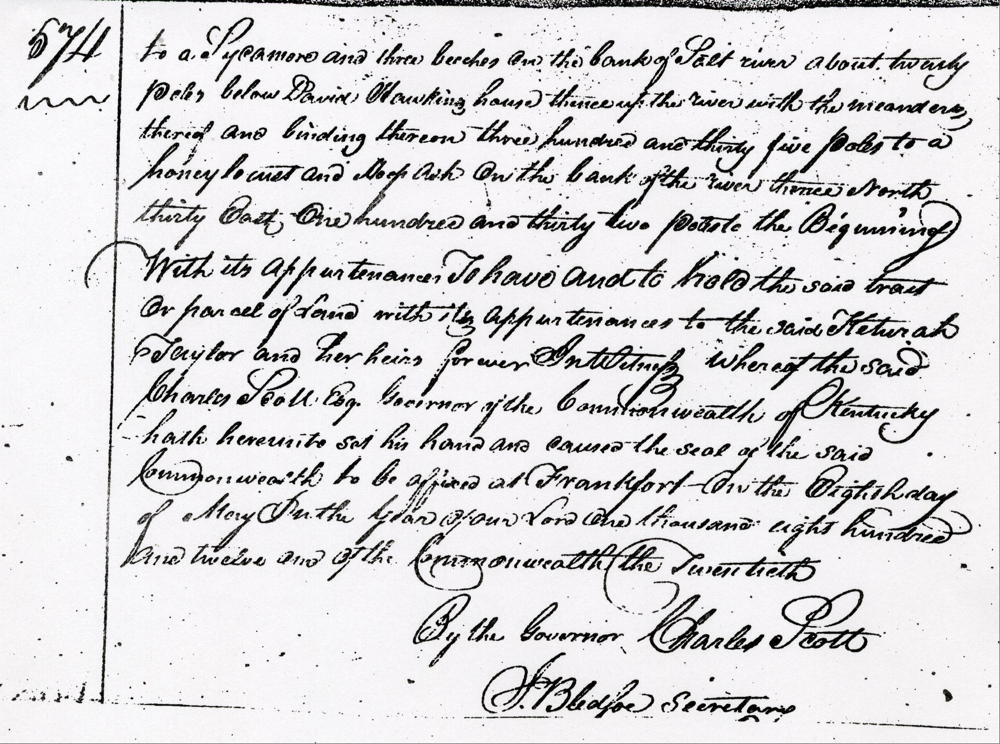 574
to a Sycamore and three beeches on the bank of Salt river about twenty
poles below David Hawkins house thence up the river with the meanders
thereof and binding thereon three hundred and thirty five poles to a
honey locust and Hoop Ash on the bank of the river thence North
thirty East One hundred and thirty two poles to the Beginning
With its appurtenances To have and to hold the said tract
or parcel of Land with its appurtenances to the said Keturah
Taylor and her heirs forever In Witness whereof the said
Charles Scott Esq. Governor of the Commonwealth of Kentucky
hath hereunto set his hand and caused the seal of the said
Commonwealth to be affixed at Frankfort on the Eighth day
of May In the Year of our Lord One thousand eight hundred
and twelve and of the Commonwealth the Twentieth
By the Governor Charles Scott
J. Bledsoe Secretary